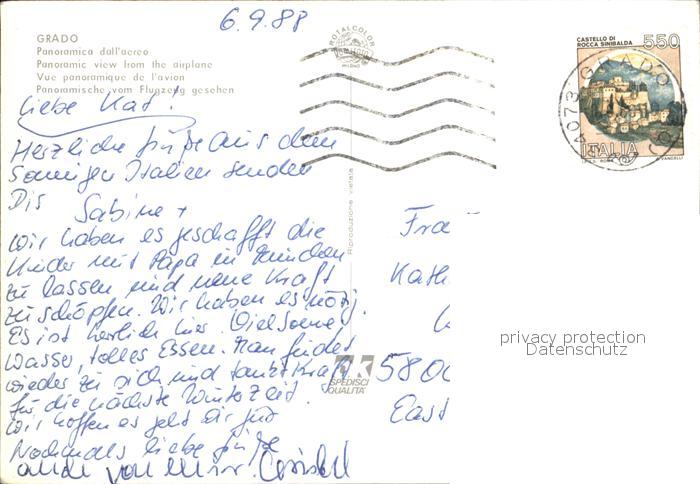 6.9.88
GRADO
Panoramica dall'aereo
Panoramic view from the airplane
Vue panoramique de l'avion
Panoramische vom Flugzeug gesehen
ROTALCOLOR
MILANO
CASTELLO DI
ROCCA SINIBALDA
550
ITALIA
34073 GRADO
Liebe Kat!
Herzliche Grüße aus dem
sonnigen Italien senden
Dir Sabine +
Wir haben es geschafft die
Kinder mit Papa in München
zu lassen und neue Kraft
zu schöpfen. Wir haben es nötig.
Es ist herrlich hier. Viel Sonne,
Wasser, tolles Essen. Man findet
wieder zu sich und tankt Kraft
für die nächste Winterzeit.
Wir hoffen es geht Dir gut
Nochmals liebe Grüße
auch von
Riproduzione vietata
SPEDISCI
QUALITA'
Fra
Kath
580
East
privacy protection
Datenschutz